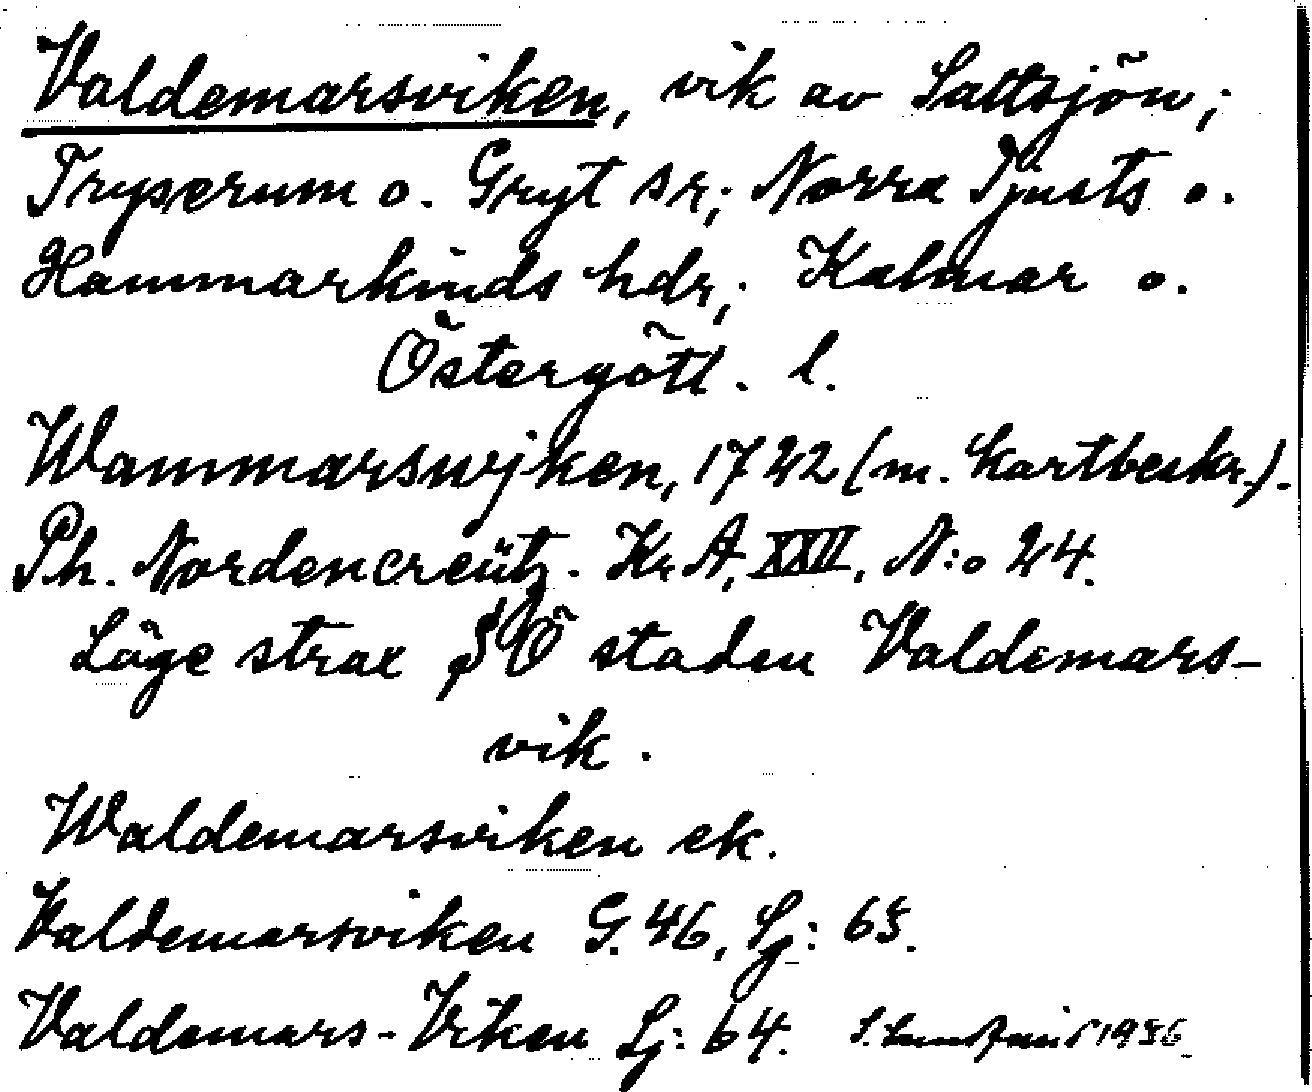 Valdemarsviken, vik av Saltsjön;
Tryserum o. Gryt sr; Norra Tjusts o.
Hammarkinds hdr; Kalmar o.
Östergötl. l.
Wammarswjken, 1722 (m. kartbeskr.).
Ph. Nordencreütz. Kr. A, XXII, N:o 24.
Läge strax Ö staden Valdemars-
vik.
Waldemarsviken ek.
Valdemarsviken G. 46, Sj: 65.
Valdemars-Viken Sj: 64. 1936